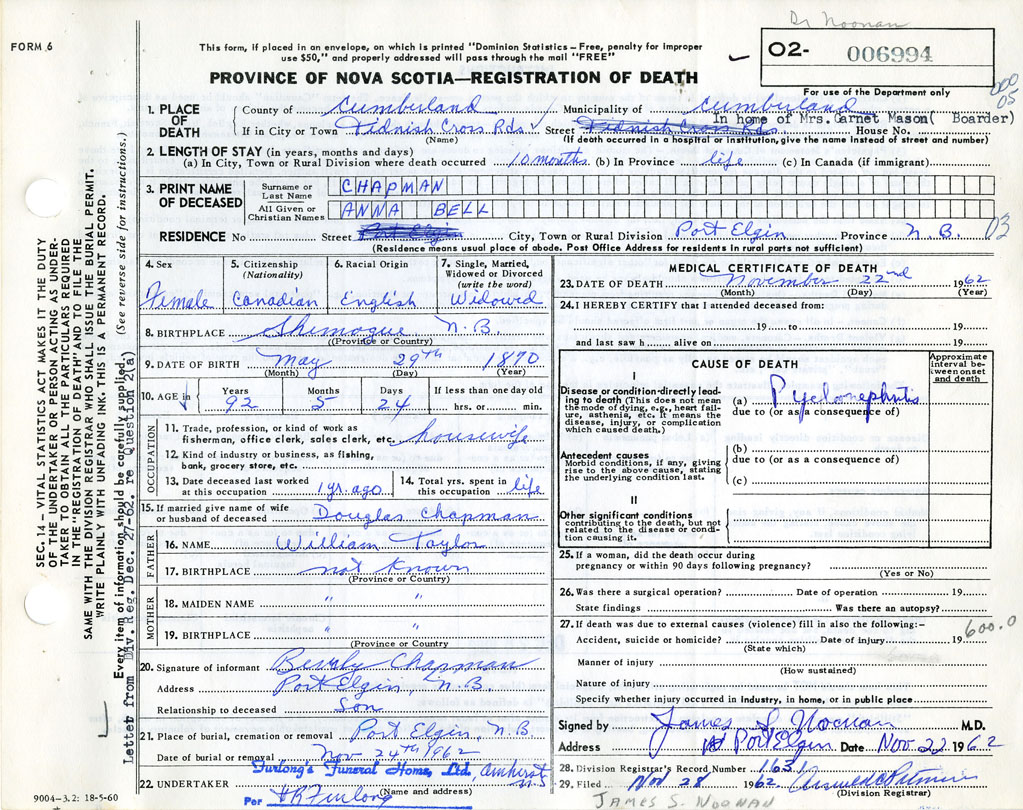 Dr Noonan
FORM 6
This form, if placed in an envelope, on which is printed "Dominion Statistics — Free, penalty for improper
use $50," and properly addressed will pass through the mail "FREE"
O2- 006994
For use of the Department only
PROVINCE OF NOVA SCOTIA—REGISTRATION OF DEATH
000
05
1. PLACE OF DEATH
County of Cumberland Municipality of Cumberland
In home of Mrs. Garnet Mason( Boarder)
If in City or Town Tidnish Cross Rds. Street Tidnish Cross Rds. House No.
(Name) (If death occurred in a hospital or institution, give the name instead of street and number)
2. LENGTH OF STAY (in years, months and days)
(a) In City, Town or Rural Division where death occurred 10 months (b) In Province life (c) In Canada (if immigrant)
3. PRINT NAME OF DECEASED
Surname or Last Name CHAPMAN
All Given or Christian Names ANNA BELL
RESIDENCE No Street Port Elgin City, Town or Rural Division Port Elgin Province N.B. 03
(Residence means usual place of abode. Post Office Address for residents in rural parts not sufficient)
4. Sex Female
5. Citizenship (Nationality) Canadian
6. Racial Origin English
7. Single, Married, Widowed or Divorced (write the word) Widowed
8. BIRTHPLACE Shemogue N.B.
(Province or Country)
9. DATE OF BIRTH May 29th 1870
(Month) (Day) (Year)
10. AGE in Years 92 Months 5 Days 24 If less than one day old hrs. or min.
OCCUPATION
11. Trade, profession, or kind of work as
fisherman, office clerk, sales clerk, etc. housewife
12. Kind of industry or business, as fishing,
bank, grocery store, etc.
13. Date deceased last worked at this occupation 1 yr. ago
14. Total yrs. spent in this occupation life
15. If married give name of wife
or husband of deceased Douglas Chapman
FATHER
16. NAME William Taylor
17. BIRTHPLACE not known
(Province or Country)
MOTHER
18. MAIDEN NAME " "
19. BIRTHPLACE " "
(Province or Country)
20. Signature of informant Beverly Chapman
Address Port Elgin, N.B.
Relationship to deceased Son
21. Place of burial, cremation or removal Port Elgin, N.B.
Date of burial or removal Nov 24th 1962
22. UNDERTAKER Furlong's Funeral Home, Ltd. Amherst N.S.
(Name and address)
Per HR Furlong
9004-3.2: 18-5-60
MEDICAL CERTIFICATE OF DEATH
23. DATE OF DEATH November 22nd 1962
(Month) (Day) (Year)
24. I HEREBY CERTIFY that I attended deceased from:
19 to 19
and last saw h alive on 19
CAUSE OF DEATH
Approximate interval between onset and death
I
Disease or condition directly leading to death (This does not mean the mode of dying, e.g., heart failure, asthenia, etc. It means the disease, injury, or complication which caused death.)
(a) Pyelonephritis
due to (or as a consequence of)
Antecedent causes
Morbid conditions, if any, giving rise to the above cause, stating the underlying condition last.
(b)
due to (or as a consequence of)
(c)
II
Other significant conditions
contributing to the death, but not related to the disease or condition causing it.
25. If a woman, did the death occur during
pregnancy or within 90 days following pregnancy?
(Yes or No)
26. Was there a surgical operation? Date of operation 19
State findings Was there an autopsy?
27. If death was due to external causes (violence) fill in also the following:-
600.0
Accident, suicide or homicide? Date of injury 19
(State which)
Manner of injury
(How sustained)
Nature of injury
Specify whether injury occurred in industry, in home, or in public place
Signed by James S Noonan M.D.
Address Port Elgin Date Nov. 22 1962
28. Division Registrar's Record Number 1631
29. Filed Nov 28 1962
(Division Registrar)
JAMES S. NOONAN
SEC. 14 — VITAL STATISTICS ACT MAKES IT THE DUTY
OF THE UNDERTAKER OR PERSON ACTING AS UNDER-
TAKER TO OBTAIN ALL THE PARTICULARS REQUIRED
IN THE "REGISTRATION OF DEATH" AND TO FILE THE
SAME WITH THE DIVISION REGISTRAR WHO SHALL ISSUE THE BURIAL PERMIT.
WRITE PLAINLY WITH UNFADING INK. THIS IS A PERMANENT RECORD.
Every item of information should be carefully supplied. (See reverse side for instructions.)
Letter from Div. Reg. Dec. 27-62. re Question 2(a)